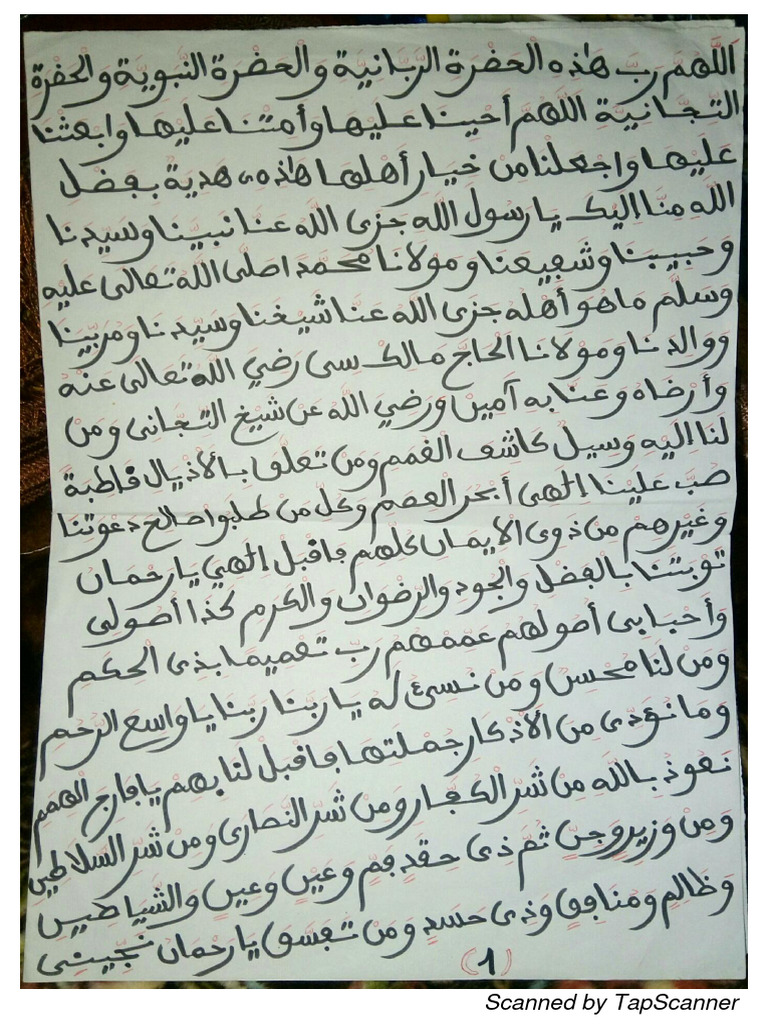 اللهم رب هذه الحضرة الربانية والحضرة النبوية والحضرة
التجانية اللهم أحينا عليها وأمتنا عليها وابعثنا
عليها واجعلنا من خيار أهلها هذه هدية بفضل
الله منا إليك يا رسول الله جزى الله عنا نبينا وسيدنا
وحبيبنا وشفيعنا ومولانا محمدا صلى الله تعالى عليه
وسلم ما هو أهله جزى الله عنا شيخنا وسيدنا ومربينا
ووالدنا ومولانا الحاج مالك سى رضي الله تعالى عنه
وأرضاه وعنا به آمين ورضي الله عن شيخ التجانى ومن
لنا إليه وسيل كاشف الغمم ومن تعلق بالأذيال قاطبة
صب علينا إلهى أبحر العصم وكل من طلبوا صالح دعوتنا
وغيرهم من ذوى الايمان كلهم فاقبل إلهي يا رحمان
توبتنا بالفضل والجود والرضوان والكرم كذا أصولى
وأحبابى أصولهم عممهم رب تعميما بذى الحكم
ومن لنا محسن ومن نسئ له يا ربنا ربنا يا واسع الرحم
وما نؤدى من الأذكار جملتها فاقبل لنا بهم يا فارج الهمم
نعوذ بالله من شر الكفار ومن شر النصارى ومن شر السلاطين
ومن وزير وجن ثم ذى حقد فم وعين وعين والشياطين
وظالم ومنافق وذى حسد ومن تفسق يا رحمان نجينى
(1)
Scanned by TapScanner